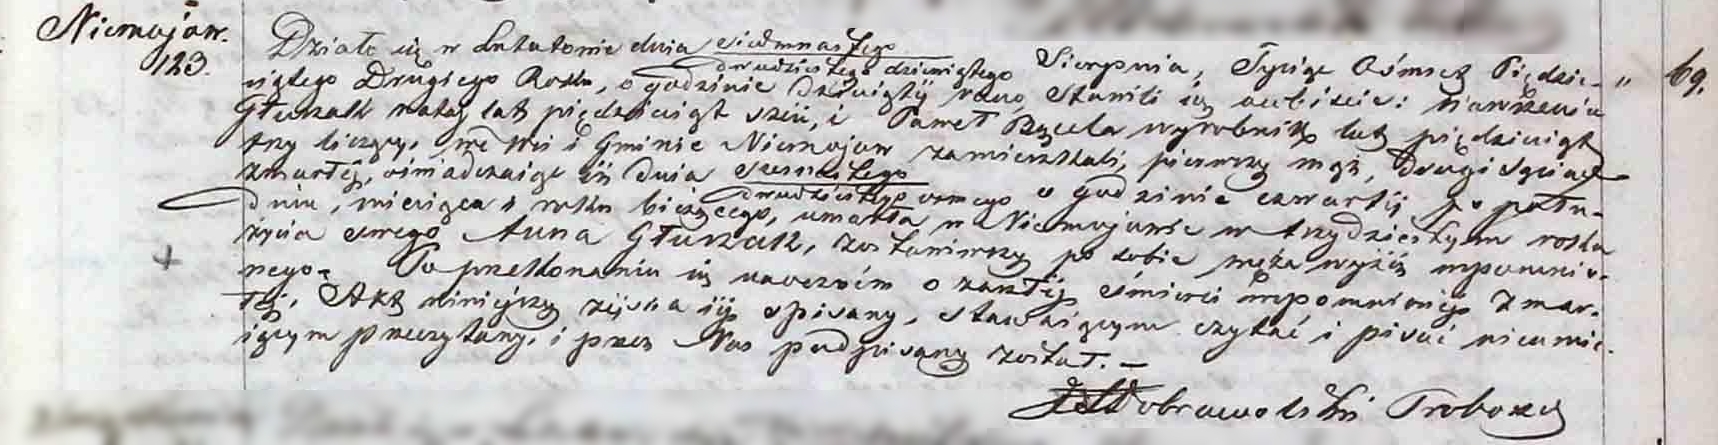 Niemojów. 123.
Działo się w Lututowie dnia siedmnastego / dwudziestego dziewiątego Sierpnia, Tysiąc Ośmset Piędzie-
siątego Drugiego Roku, o godzinie dziewiątéj rano, Stawili się osobiście: Wawrzeniec 69.
Głuszak mający lat pięćdziesiąt, i Paweł wyrobnik lat pięćdziesiąt
trzy liczący, we Wsi i Gminie Niemojów zamieszkali, pierwszy mąż, drugi Sąsiad
zmarłéj, oświadczając iż dnia szesnastego / dwudziestego osmego o godzinie czwartéj po połu-
dniu, miesiąca i roku bieżącego, umarła w Niemojowie w trzydziestym roku
życia swego Anna Głuszak, zostawiwszy po sobie męża wyżéj wspomnio-
nego. Po przekonaniu się naocznem o zaszłéj śmierci wspomnionéj zmar-
łéj, Akt niniejszy zejścia jéj spisany, stawaiącym czytać i pisać nieumie-
iącym przeczytany, i przez Nas podpisany został. –
Dobrowolski Proboszcz